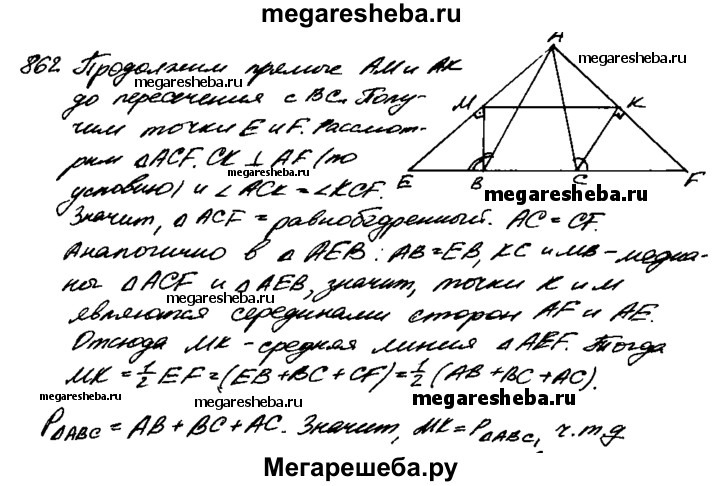 megaresheba.ru
862 Продолжим прямые AM и AK
до пересечения с BC. Полу-
чим точки E и F. Рассмот-
рим △ACF. CK ⊥ AF (по
условию) и ∠ACK = ∠KCF.
Значит, △ACF = равнобедренный. AC = CF.
Аналогично в △AEB: AB=EB, KC и MB - медиа-
ны △ACF и △AEB, значит, точки K и M
являются серединами сторон AF и AE.
Отсюда MK - средняя линия △AEF. Тогда
MK = 1/2 EF = (EB + BC + CF) = 1/2 (AB + BC + AC).
P△ABC = AB + BC + AC. Значит, MK = P△ABC, ч.т.д
A
M
K
E
B
C
F
megaresheba.ru
megaresheba.ru
megaresheba.ru
megaresheba.ru
megaresheba.ru
megaresheba.ru
megaresheba.ru
megaresheba.ru
megaresheba.ru
Мегарешеба.ру